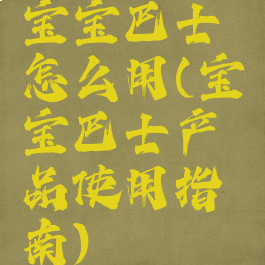 宝宝巴士
怎么用(宝
宝巴士产
品使用指
南)